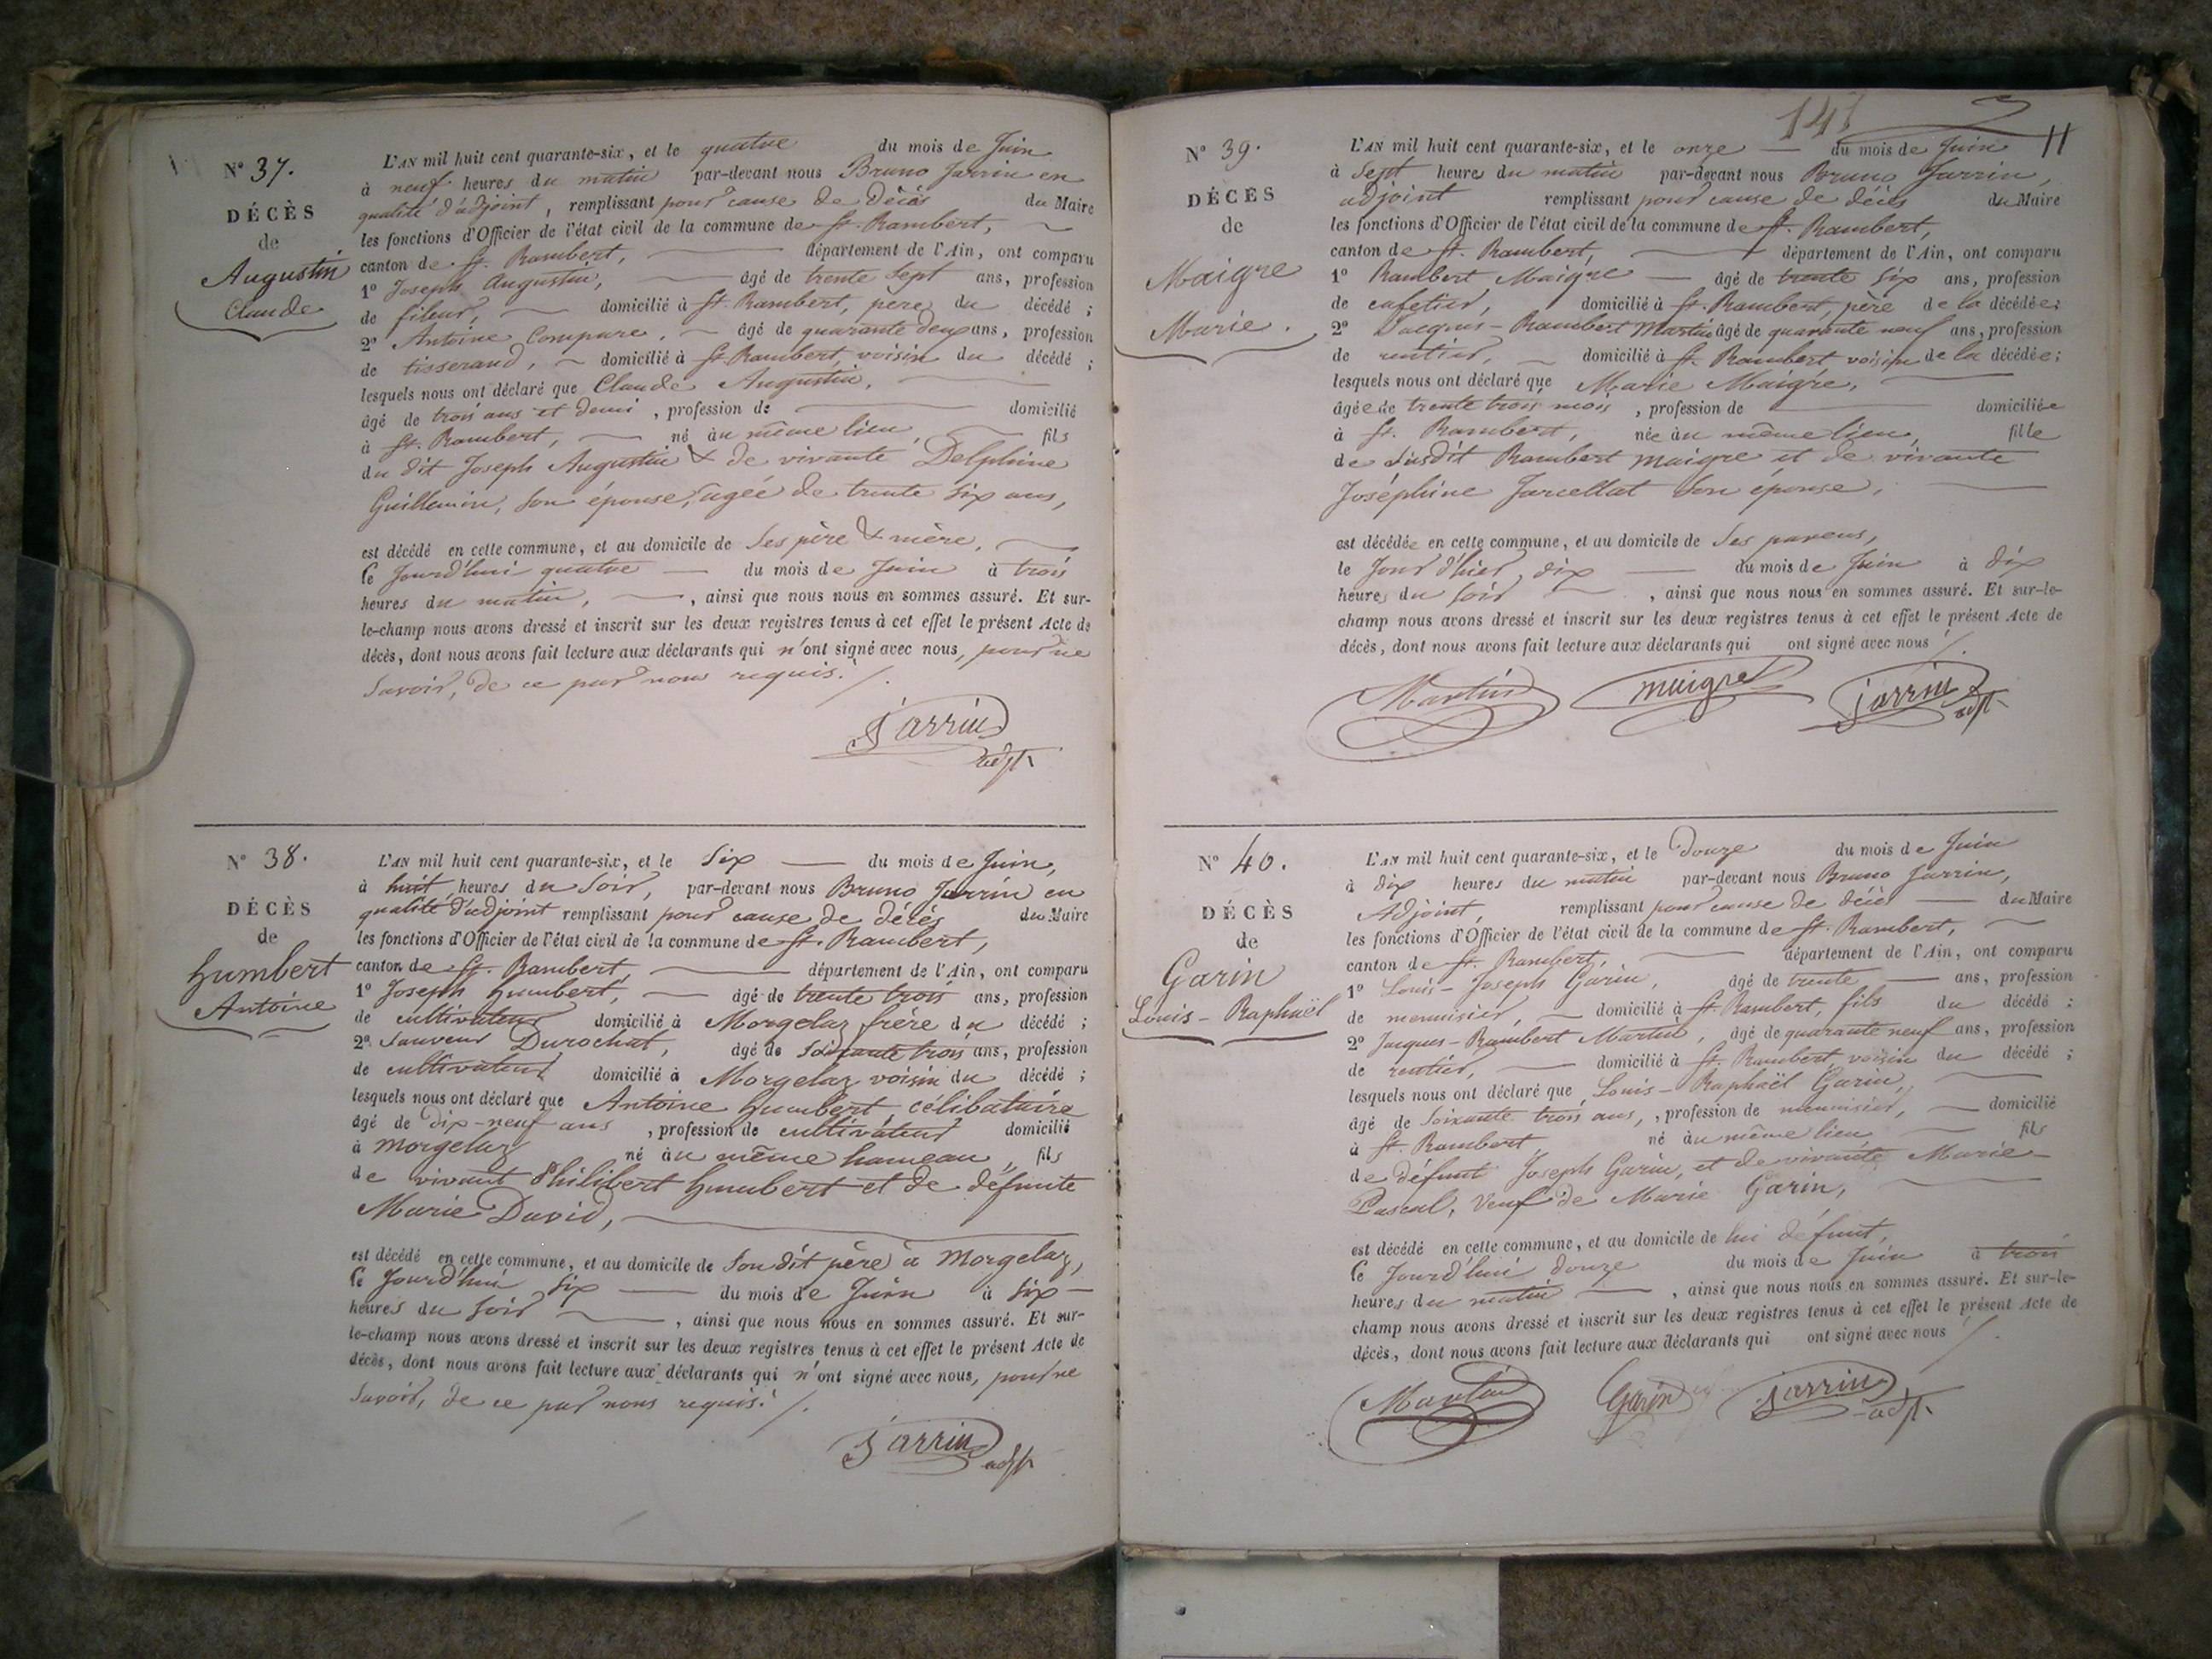 N° 37.
DÉCÈS
de
Augustin
Claude
L'AN mil huit cent quarante-six, et le quatre du mois de Juin
à neuf heures du matin par-devant nous Bruno Jarrin en
qualité d'adjoint, remplissant pour cause de décès du Maire
les fonctions d'Officier de l'état civil de la commune de St. Rambert,
canton de St. Rambert, département de l'Ain, ont comparu
1° Joseph Augustin, âgé de trente sept ans, profession
de fileur, domicilié à St. Rambert, père du décédé ;
2° Antoine Compare, âgé de quarante deux ans, profession
de tisserand, domicilié à St. Rambert, voisin du décédé ;
lesquels nous ont déclaré que Claude Augustin,
âgé de trois ans et demi, profession de domicilié
à St. Rambert, né au même lieu, fils
du dit Joseph Augustin & de vivante Delphine
Guillemin, son épouse, agée de trente six ans,
est décédé en cette commune, et au domicile de ses père & mère,
le Jourd'hui quatre du mois de Juin à trois
heures du matin, , ainsi que nous nous en sommes assuré. Et sur-
le-champ nous avons dressé et inscrit sur les deux registres tenus à cet effet le présent Acte de
décès, dont nous avons fait lecture aux déclarants qui n'ont signé avec nous, pour ne
savoir, de ce par nous requis. /.
Jarrin
adjt
N° 38.
DÉCÈS
de
humbert
Antoine
L'AN mil huit cent quarante-six, et le six du mois de Juin,
à huit heures du soir, par-devant nous Bruno Jarrin en
qualité d'adjoint remplissant pour cause de décès du Maire
les fonctions d'Officier de l'état civil de la commune de St. Rambert,
canton de St. Rambert, département de l'Ain, ont comparu
1° Joseph humbert, âgé de trente trois ans, profession
de cultivateur domicilié à Morgelaz frère du décédé ;
2° Sauveur Durochat, âgé de soixante trois ans, profession
de cultivateur domicilié à Morgelaz voisin du décédé ;
lesquels nous ont déclaré que Antoine humbert, célibataire
âgé de dix-neuf ans, profession de cultivateur domicilié
à Morgelaz né au même hameau, fils
de vivant Philibert humbert et de défunte
Marie David,
est décédé en cette commune, et au domicile de Son dit père à Morgelaz,
le Jourd'hui six du mois de Juin à six
heures du soir , ainsi que nous nous en sommes assuré. Et sur-
le-champ nous avons dressé et inscrit sur les deux registres tenus à cet effet le présent Acte de
décès, dont nous avons fait lecture aux déclarants qui n'ont signé avec nous, pour ne
savoir, de ce par nous requis. /.
Jarrin adjt
141
11
N° 39.
DÉCÈS
de
Maigre
Marie.
L'AN mil huit cent quarante-six, et le onze du mois de Juin
à Sept heures du matin par-devant nous Bruno Jarrin,
adjoint remplissant pour cause de décès du Maire
les fonctions d'Officier de l'état civil de la commune de St. Rambert,
canton de St. Rambert, département de l'Ain, ont comparu
1° Rambert Maigre âgé de trente six ans, profession
de cafetier, domicilié à St. Rambert, père de la décédée ;
2° Jacques-Rambert Martin âgé de quarante neuf ans, profession
de rentier, domicilié à St. Rambert voisin de la décédée ;
lesquels nous ont déclaré que Marie Maigre,
âgée de trente trois mois, profession de domiciliée
à St. Rambert, née au même lieu, fille
de susdit Rambert Maigre et de vivante
Joséphine Jarcellat son épouse,
est décédée en cette commune, et au domicile de Ses parens,
le Jour d'hier dix du mois de Juin à dix
heures du soir , ainsi que nous nous en sommes assuré. Et sur-le-
champ nous avons dressé et inscrit sur les deux registres tenus à cet effet le présent Acte de
décès, dont nous avons fait lecture aux déclarants qui ont signé avec nous /.
Martin maigre Jarrin adjt
N° 40.
DÉCÈS
de
Garin
Louis-Raphaël
L'AN mil huit cent quarante-six, et le Douze du mois de Juin
à dix heures du matin par-devant nous Bruno Jarrin,
Adjoint, remplissant pour cause de décès du Maire
les fonctions d'Officier de l'état civil de la commune de St. Rambert,
canton de St. Rambert, département de l'Ain, ont comparu
1° Louis-Joseph Garin, âgé de trente ans, profession
de menuisier, domicilié à St. Rambert, fils du décédé ;
2° Jacques-Rambert Martin, âgé de quarante neuf ans, profession
de rentier, domicilié à St. Rambert, voisin du décédé ;
lesquels nous ont déclaré que Louis-Raphaël Garin,
âgé de Soixante trois ans, , profession de menuisier, domicilié
à St. Rambert né au même lieu fils
de défunt Joseph Garin, et de vivante Marie
Pascal, Veuf de Marie Garin,
est décédé en cette commune, et au domicile de lui défunt,
le Jourd'hui douze du mois de Juin à trois
heures du matin , ainsi que nous nous en sommes assuré. Et sur-le-
champ nous avons dressé et inscrit sur les deux registres tenus à cet effet le présent Acte de
décès, dont nous avons fait lecture aux déclarants qui ont signé avec nous /.
Martin Garin Jarrin adjt